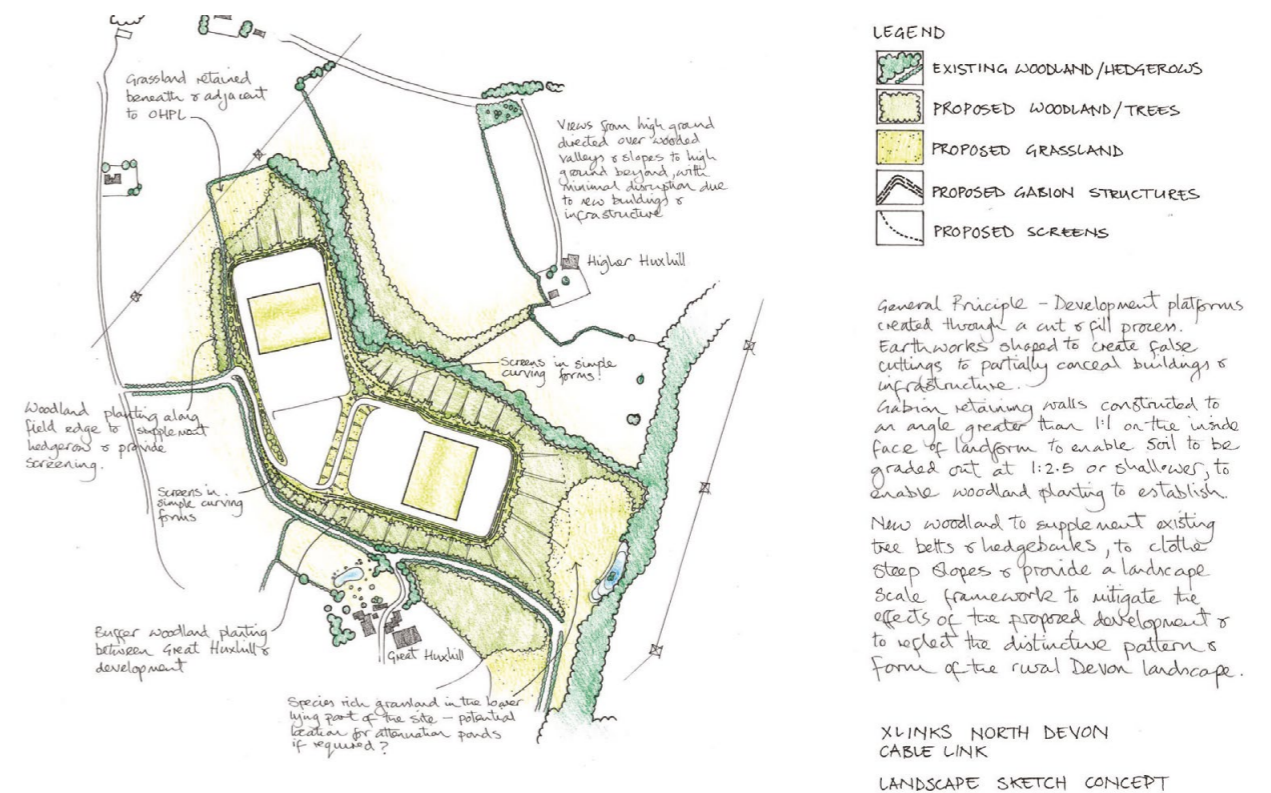 Grassland retained
beneath & adjacent
to OHPL
Views from high ground
directed over wooded
valleys & slopes to high
ground beyond, with
minimal disruption due
to new buildings &
infrastructure
Higher Huxhill
Screens in simple
curving forms!
Woodland planting along
field edge to supplement
hedgerow & provide
screening.
Screens in
simple curving
forms
Buffer woodland planting
between Great Huxhill &
development
Great Huxhill
Species rich grassland in the lower
lying part of the site – potential
location for attenuation ponds
if required?
LEGEND
EXISTING WOODLAND/HEDGEROWS
PROPOSED WOODLAND/TREES
PROPOSED GRASSLAND
PROPOSED GABION STRUCTURES
PROPOSED SCREENS
General Principle – Development platforms
created through a cut & fill process.
Earthworks shaped to create false
cuttings to partially conceal buildings &
infrastructure.
Gabion retaining walls constructed to
an angle greater than 1:1 on the inside
face of landform to enable soil to be
graded out at 1:2.5 or shallower, to
enable woodland planting to establish.
New woodland to supplement existing
tree belts & hedgebanks, to clothe
steep slopes & provide a landscape
scale framework to mitigate the
effects of the proposed development &
to reflect the distinctive pattern &
form of the rural Devon landscape.
XLINKS NORTH DEVON
CABLE LINK
LANDSCAPE SKETCH CONCEPT